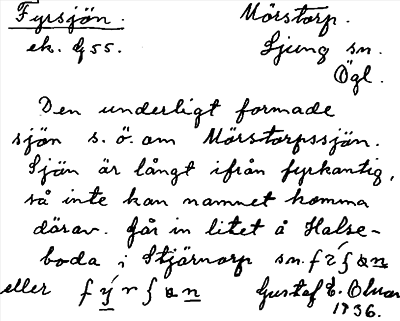 Fyrsjön. Mörstorp.
ek. G55. Ljung sn.
Ögl.
Den underligt formade
sjön s.ö. om Mörstorpssjön.
Sjön är långt ifrån fyrkantig,
så inte kan namnet komma
därav. Går in litet å Halse-
boda i Stjärnorp sn.
eller Gustaf E.
1936.